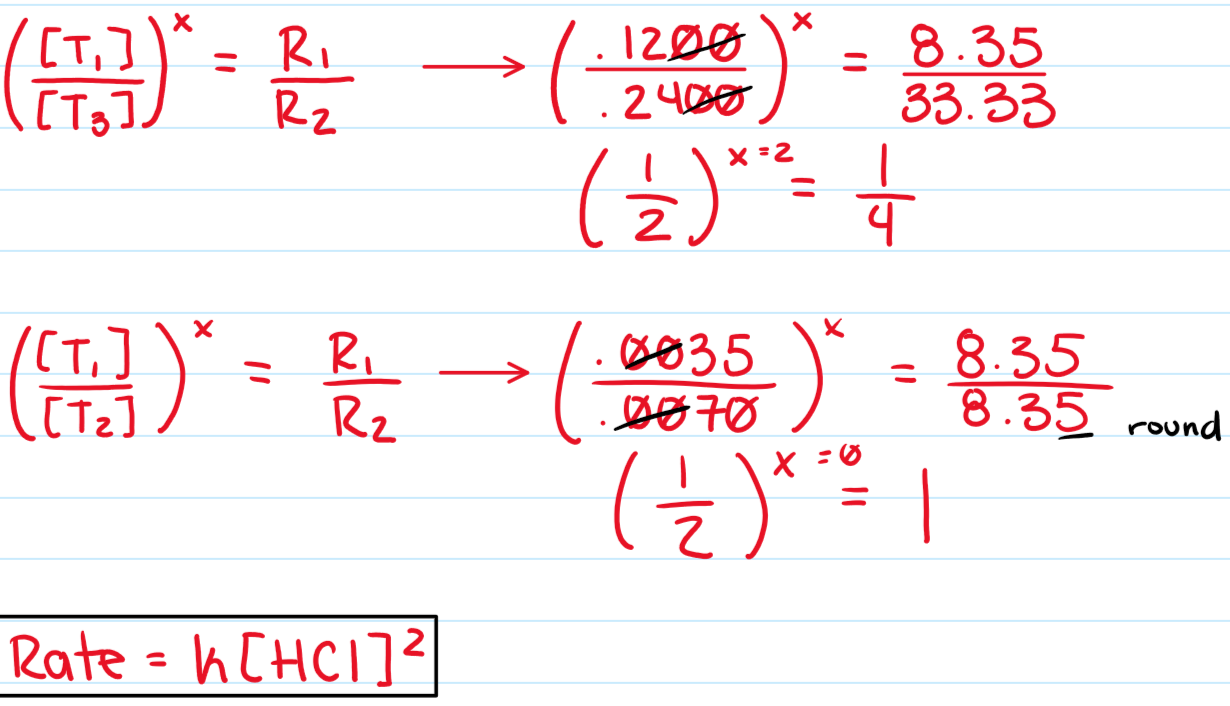 ([T₁]/[T₃])ˣ = R₁/R₂ → (.1200/.2400)ˣ = 8.35/33.33
(1/2)ˣ⁼² = 1/4
([T₁]/[T₂])ˣ = R₁/R₂ → (.0035/.0070)ˣ = 8.35/8.35 round
(1/2)ˣ⁼⁰ = 1
Rate = k[HCl]²